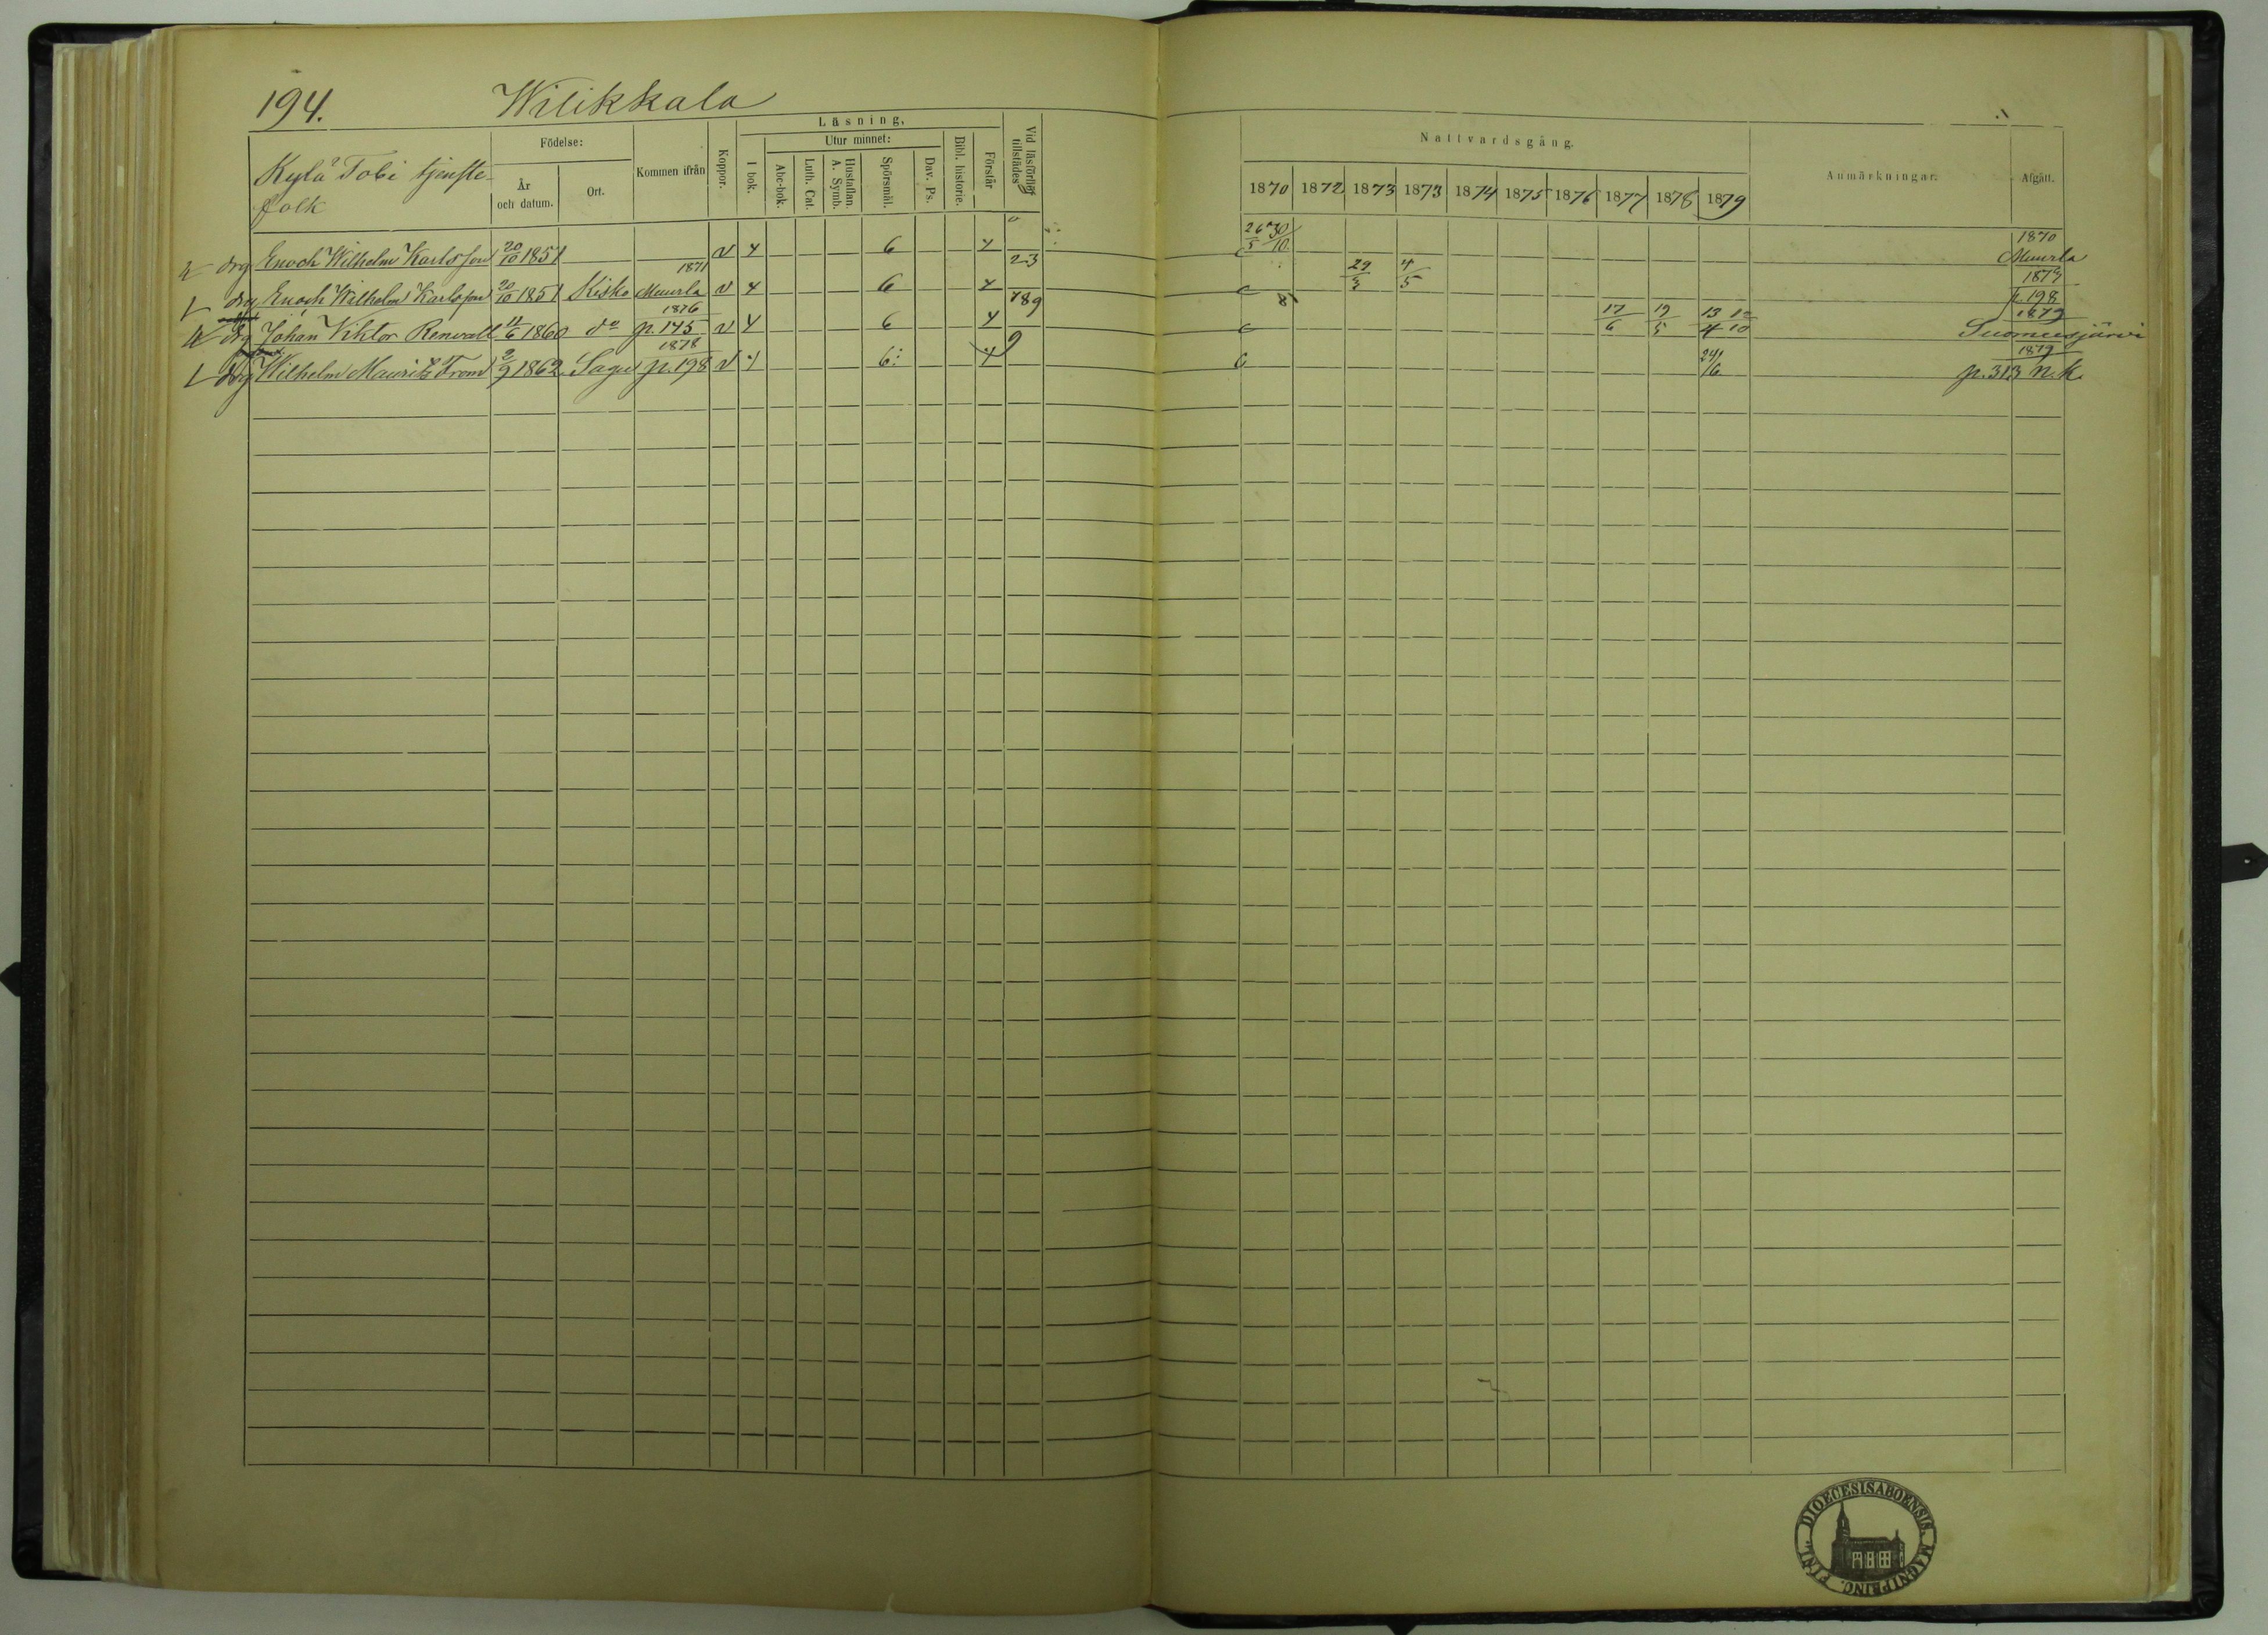 194. Wilikkala
Kylä Tobi tjenste-
folk
Födelse:
År
och datum.
Ort.
Kommen ifrån
Koppor.
Läsning.
I bok.
Utur minnet:
Abc-bok.
Luth. Cat.
Hustaflan.
A. Symb.
Spörsmål.
Dav. Ps.
Bibl. historie.
Förstår
Vid läsförhör
tillstädes
Nattvardsgång.
1870 1872 1873 1873 1874 1875 1876 1877 1878 1879
Anmärkningar.
Afgått.
drg Enoch Wilhelm Karlsson 20/10 1851 v 4 6 4 26/5 30/10 1870 Muurla
drg Enoch Wilhelm Karlsson 20/10 1851 Kisko 1871 Muurla v 4 6 4 23 29/3 4/5 1873 p. 198
drg Johan Viktor Renvall 11/6 1860 do 1876 p. 145 v 4 6 4 789 17/6 19/5 13/4 12/10 1879 Suomusjärvi
drg Wilhelm Maurits From 2/9 1862 Sagu 1878 p. 198 v 4 6: 4 9 24/6 1879 p. 313 n. k.
DIOECESIS ABOENSIS. MAGNI PRINC. FINL.